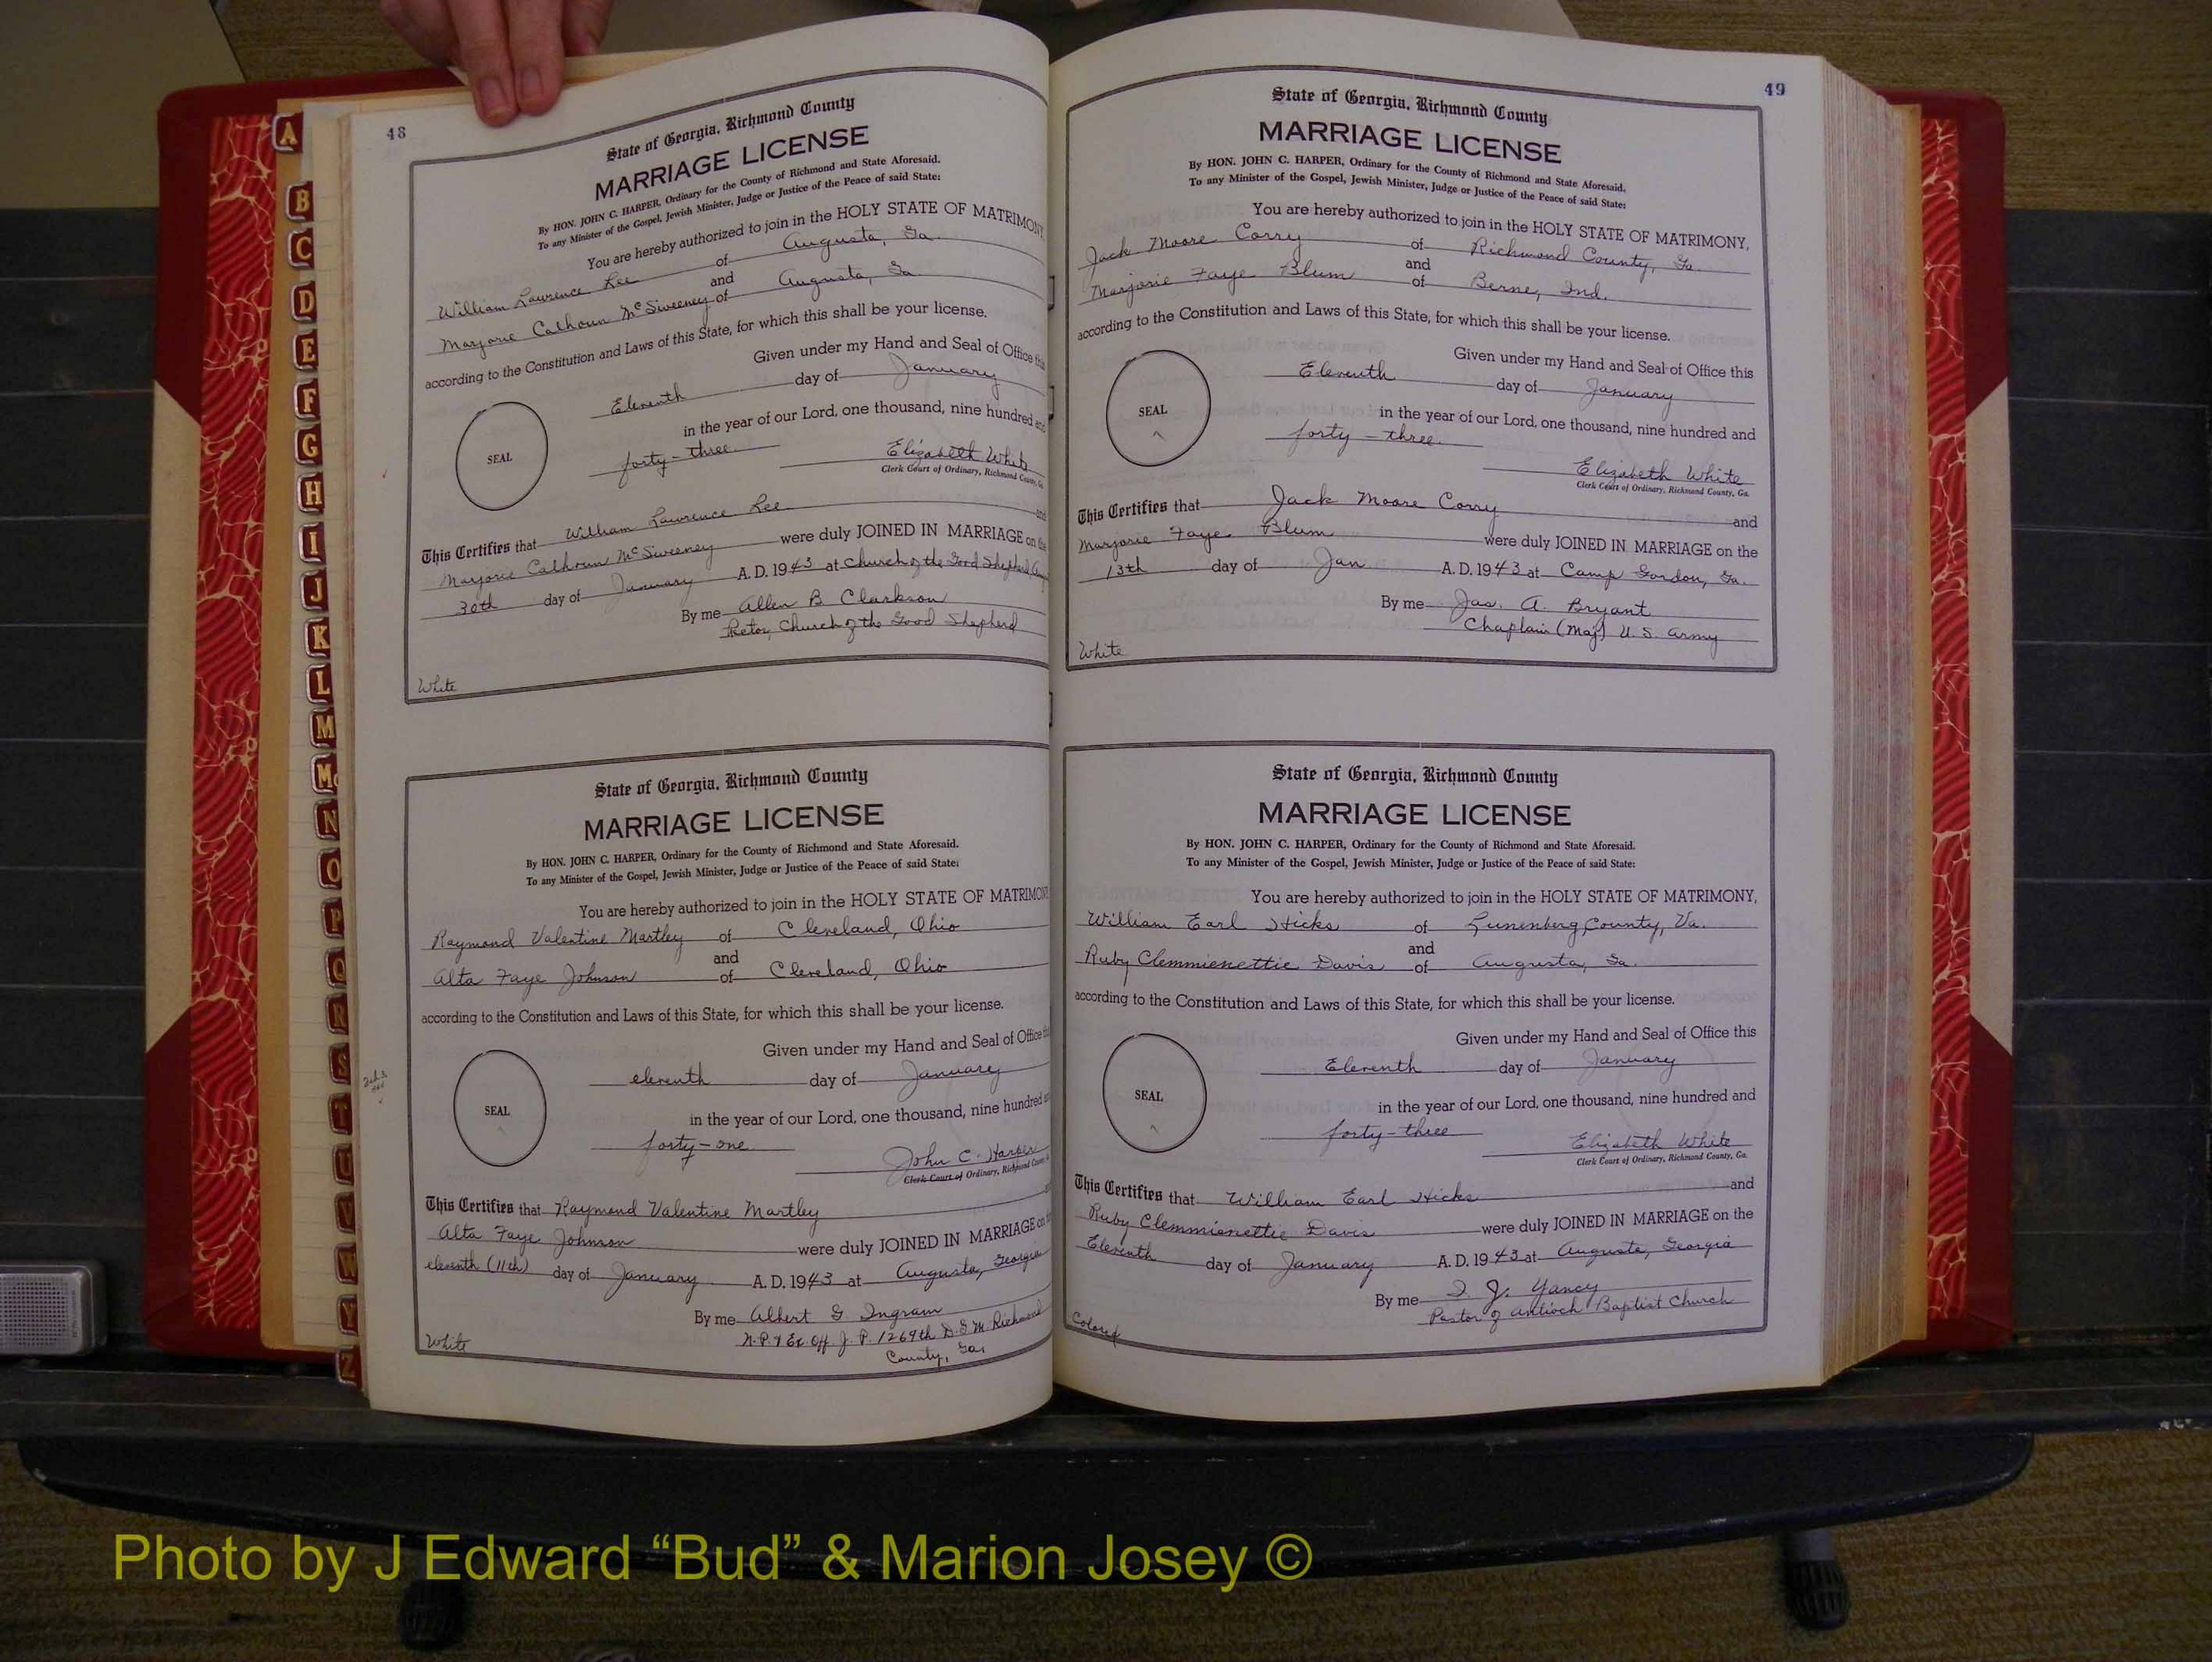 48
State of Georgia, Richmond County
MARRIAGE LICENSE
By HON. JOHN C. HARPER, Ordinary for the County of Richmond and State Aforesaid.
To any Minister of the Gospel, Jewish Minister, Judge or Justice of the Peace of said State:
You are hereby authorized to join in the HOLY STATE OF MATRIMONY,
William Lawrence Lee of Augusta, Ga.
and
Marjorie Calhoun McSweeney of Augusta, Ga
according to the Constitution and Laws of this State, for which this shall be your license.
Given under my Hand and Seal of Office this
Eleventh day of January
in the year of our Lord, one thousand, nine hundred and
forty-three
SEAL
Elizabeth White
Clerk Court of Ordinary, Richmond County, Ga.
This Certifies that William Lawrence Lee and
Marjorie Calhoun McSweeney were duly JOINED IN MARRIAGE on the
30th day of January A. D. 1943 at Church of the Good Shepherd
By me Allen B Clarkson
Retor, Church of the Good Shepherd
White
State of Georgia, Richmond County
MARRIAGE LICENSE
By HON. JOHN C. HARPER, Ordinary for the County of Richmond and State Aforesaid.
To any Minister of the Gospel, Jewish Minister, Judge or Justice of the Peace of said State:
You are hereby authorized to join in the HOLY STATE OF MATRIMONY
Raymond Valentine Martley of Cleveland, Ohio
and
Alta Faye Johnson of Cleveland, Ohio
according to the Constitution and Laws of this State, for which this shall be your license.
Given under my Hand and Seal of Office this
eleventh day of January
in the year of our Lord, one thousand, nine hundred
forty-one
SEAL
John C. Harper
Clerk Court of Ordinary, Richmond County
This Certifies that Raymond Valentine Martley
Alta Faye Johnson were duly JOINED IN MARRIAGE on
eleventh (11th) day of January A. D. 1943 at Augusta, Georgia
By me Albert G Ingram
N.P. & Ex. Off. J. P. 1269th D. G. M. Richmond
County, Ga.
White
49
State of Georgia, Richmond County
MARRIAGE LICENSE
By HON. JOHN C. HARPER, Ordinary for the County of Richmond and State Aforesaid.
To any Minister of the Gospel, Jewish Minister, Judge or Justice of the Peace of said State:
You are hereby authorized to join in the HOLY STATE OF MATRIMONY,
Jack Moore Corry of Richmond County, Ga.
and
Marjorie Faye Blum of Berne, Ind.
according to the Constitution and Laws of this State, for which this shall be your license.
Given under my Hand and Seal of Office this
Eleventh day of January
in the year of our Lord, one thousand, nine hundred and
forty-three.
SEAL
Elizabeth White
Clerk Court of Ordinary, Richmond County, Ga.
This Certifies that Jack Moore Corry and
Marjorie Faye Blum were duly JOINED IN MARRIAGE on the
13th day of Jan. A. D. 1943 at Camp Gordon, Ga.
By me Jas. A. Bryant
Chaplain (Maj) U. S. Army
White
State of Georgia, Richmond County
MARRIAGE LICENSE
By HON. JOHN C. HARPER, Ordinary for the County of Richmond and State Aforesaid.
To any Minister of the Gospel, Jewish Minister, Judge or Justice of the Peace of said State:
You are hereby authorized to join in the HOLY STATE OF MATRIMONY,
William Earl Hicks of Lunenberg County, Va.
and
Ruby Clemmienettie Davis of Augusta, Ga.
according to the Constitution and Laws of this State, for which this shall be your license.
Given under my Hand and Seal of Office this
Eleventh day of January
in the year of our Lord, one thousand, nine hundred and
forty-three
SEAL
Elizabeth White
Clerk Court of Ordinary, Richmond County, Ga.
This Certifies that William Earl Hicks and
Ruby Clemmienettie Davis were duly JOINED IN MARRIAGE on the
Eleventh day of January A. D. 1943 at Augusta, Georgia
By me J. Yancy
Pastor of Antioch Baptist Church
Colored
A
B
C
D
E
F
G
H
I
J
K
L
M
Mc
N
O
P
Q
R
S
T
U
V
W
Y
Z
Photo by J Edward “Bud” & Marion Josey ©